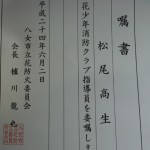 嘱書
松尾高生
花少年消防クラブ指導員を委嘱しま
平成二十四年六月二日
八女市立花防火委員会
会長 樋川龍